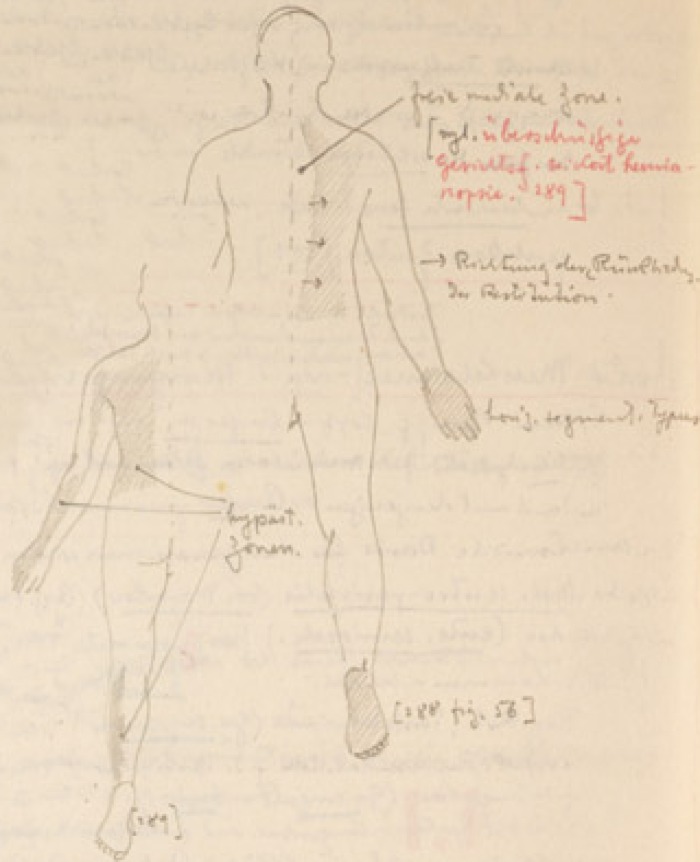 freie mediale Zone.
[vgl. überschüssige
Gesichtsf. bei hemia-
nopsie. 289]
→ Richtung der
der Restitution.
horiz. segment. Typus
hypäst.
Zonen.
[288 fig. 56]
[289]